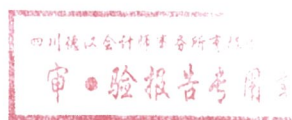 四川德汉会计师事务所有限
审●验报告专用章